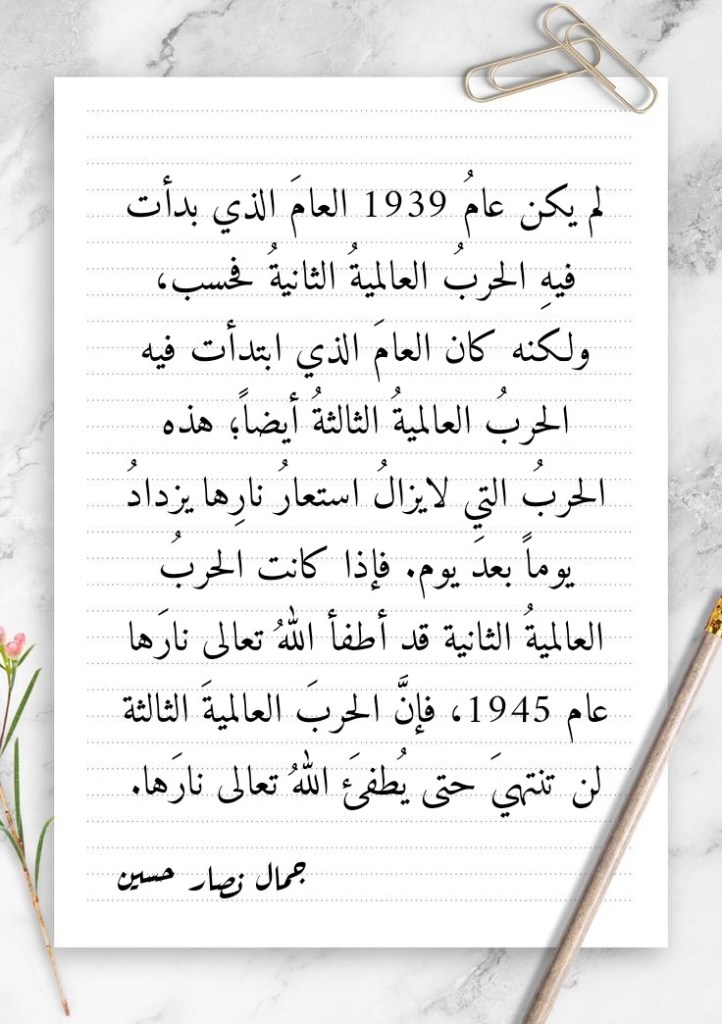 لم يكن عامُ 1939 العامَ الذي بدأت
فيهِ الحربُ العالميةُ الثانيةُ فحسب،
ولكنه كان العامَ الذي ابتدأت فيه
الحربُ العالميةُ الثالثةُ أيضاً؛ هذه
الحربُ التي لايزالُ استعارُ نارِها يزدادُ
يوماً بعدَ يوم. فإذا كانت الحربُ
العالميةُ الثانية قد أطفأ اللهُ تعالى نارَها
عام 1945، فإنَّ الحربَ العالميةَ الثالثة
لن تنتهيَ حتى يُطفئَ اللهُ تعالى نارَها.
جمال نصار حسين